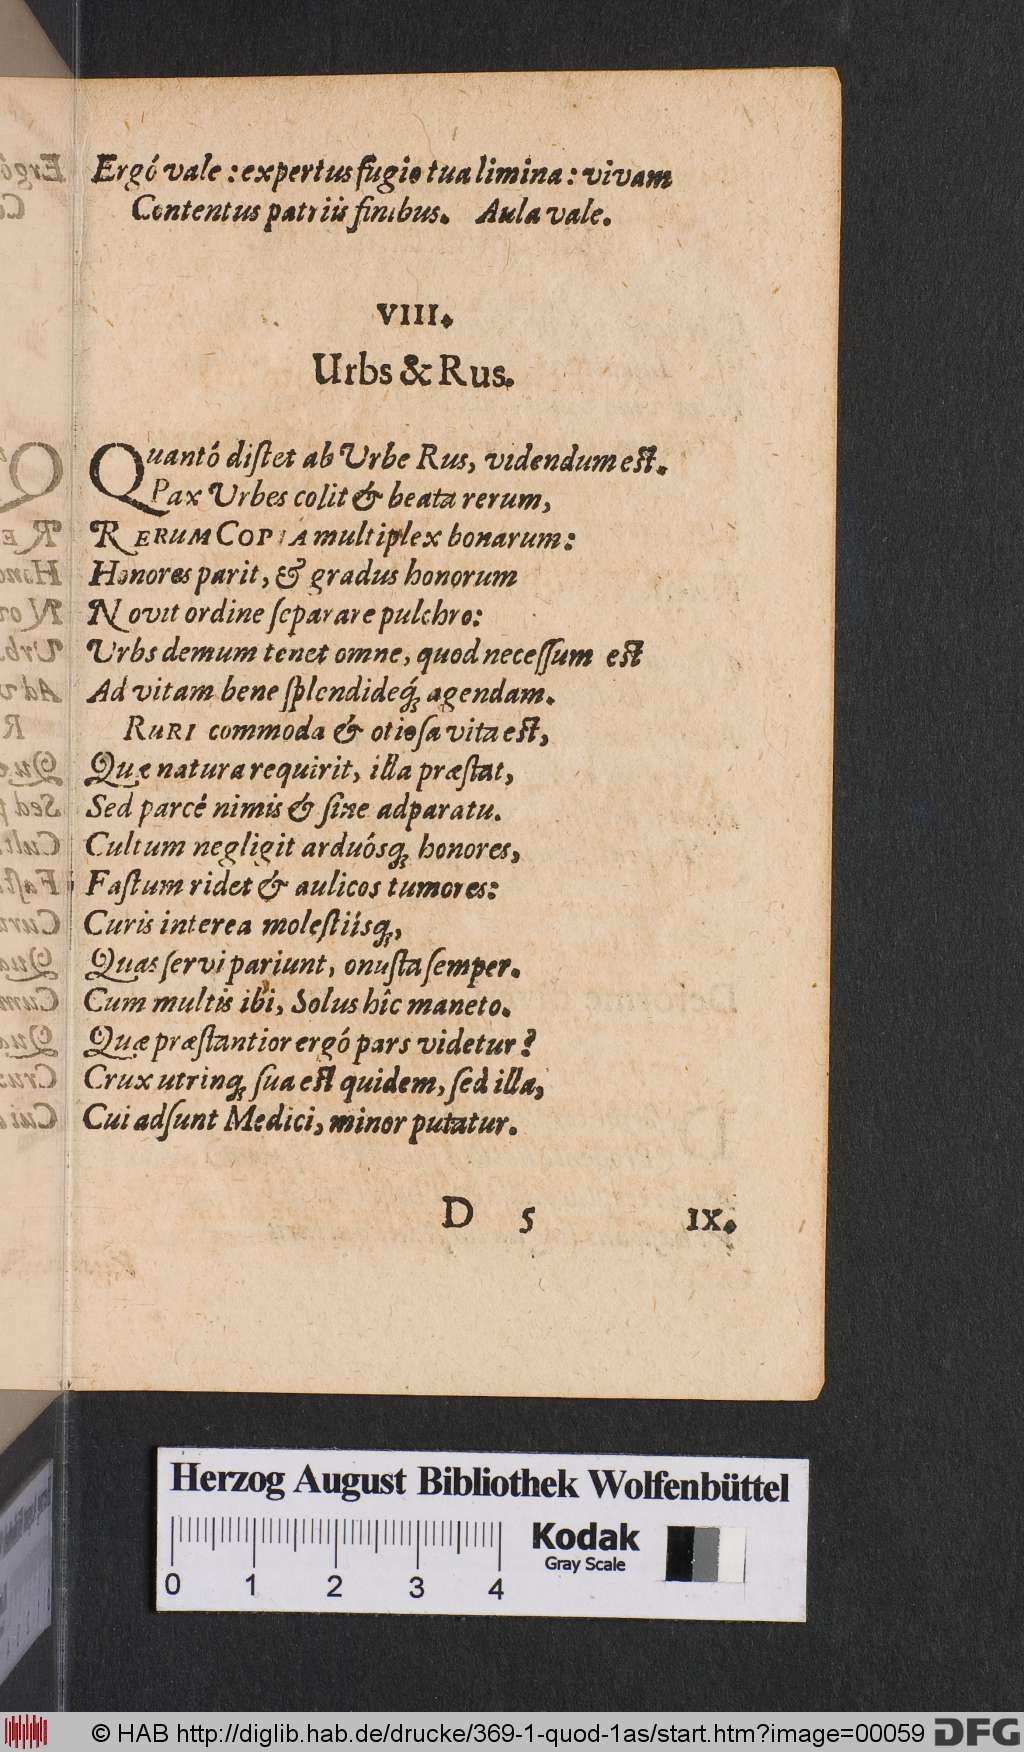 Ergó vale : expertus fugio tua limina : vivam
Contentus patriis finibus. Aula vale.
VIII.
Urbs & Rus.
Quantó distet ab Urbe Rus, videndum est.
Pax Urbes colit & beata rerum,
RERUM COPIA multiplex bonarum:
Honores parit, & gradus honorum
Novit ordine separare pulchro:
Urbs demum tenet omne, quod necessum est
Ad vitam bene splendideq́; agendam.
RURI commoda & otiosa vita est,
Quæ natura requirit, illa præstat,
Sed parcé nimis & sine adparatu.
Cultum negligit arduósq; honores,
Fastum ridet & aulicos tumores:
Curis interea molestiisq;,
Quas servi pariunt, onusta semper.
Cum multis ibi, Solus hîc maneto.
Quæ præstantior ergó pars videtur?
Crux utrinq; sua est quidem, sed illa,
Cui adsunt Medici, minor putatur.
D 5 IX.
Herzog August Bibliothek Wolfenbüttel
Kodak
Gray Scale
0 1 2 3 4
© HAB http://diglib.hab.de/drucke/369-1-quod-1as/start.htm?image=00059 DFG